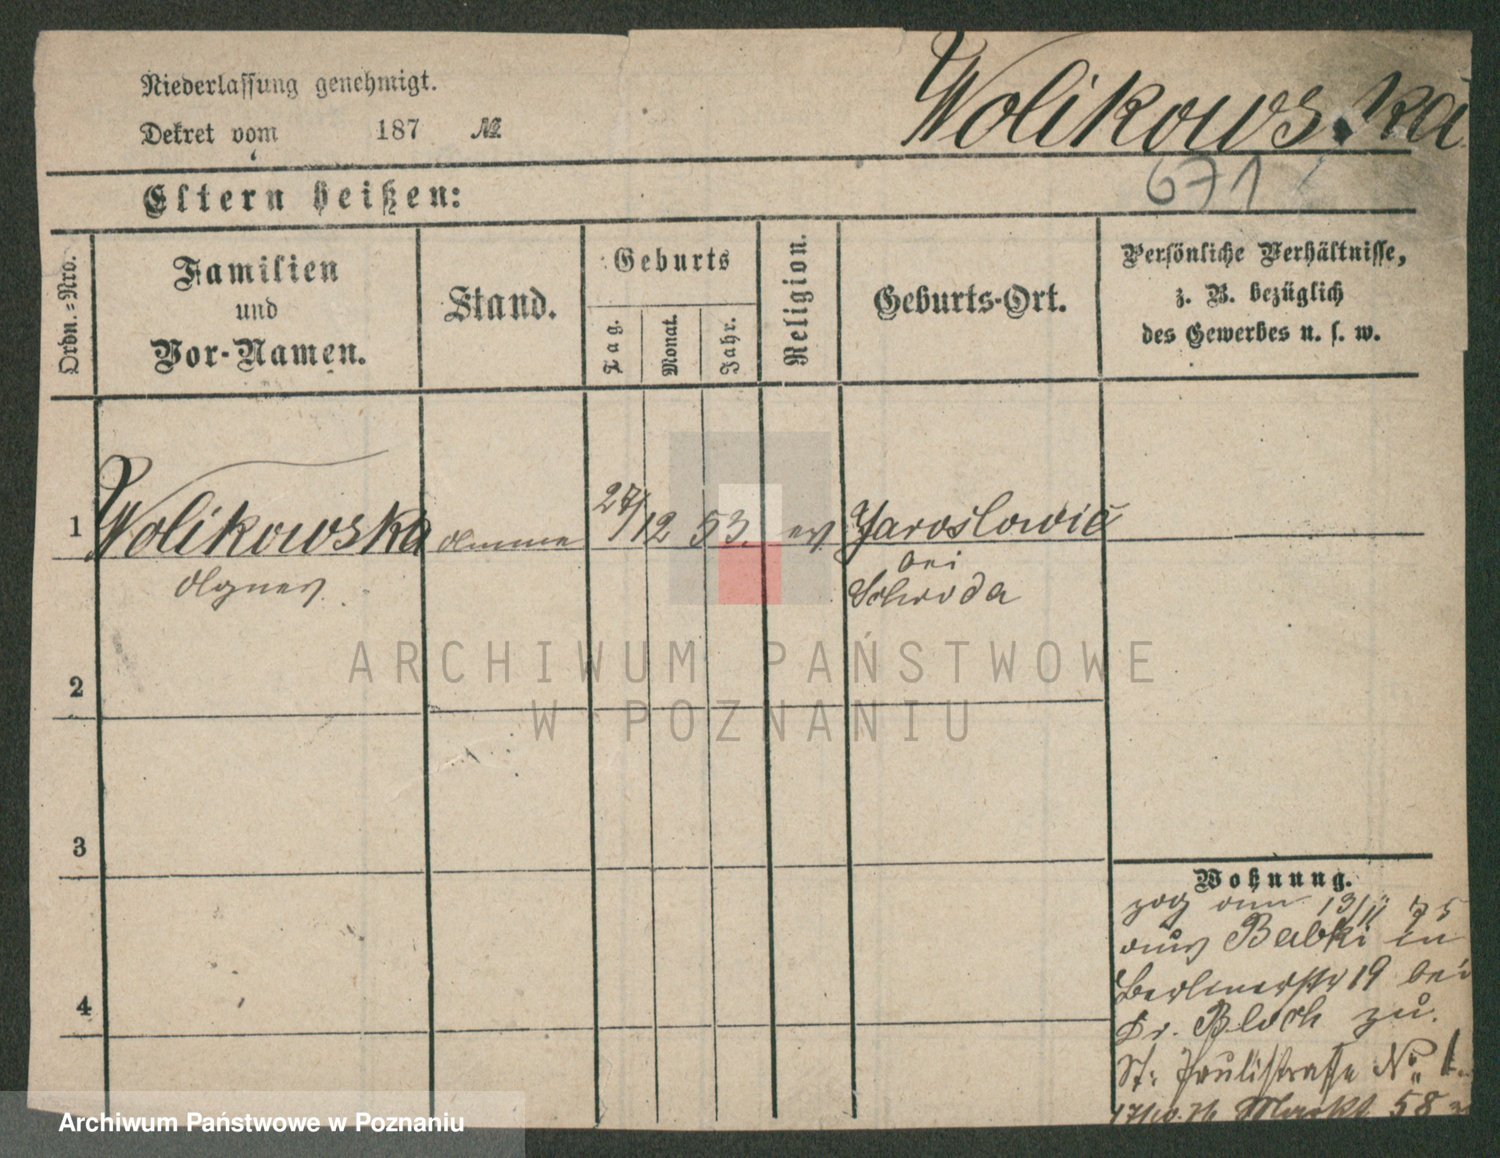 Niederlassung genehmigt.
Dekret vom 187 №
Wolikowska
671
Eltern heißen:
Ordn.=Nro.
Familien
und
Vor-Namen.
Stand.
Geburts
Tag.
Monat.
Jahr.
Religion.
Geburts-Ort.
Persönliche Verhältnisse,
z. B. bezüglich
des Gewerbes u. s. w.
1 Wolikowska Amme 27/12 53. ev Jaroslowiec
Agnes bei
Schroda
2
3
4
Wohnung.
zog am 13/11 75
aus Babki in
Berlinerstr 19 bei
Dr. Bloch zu.
St: Paulistrasse No 1.
17/10.76 Markt 58
ARCHIWUM PAŃSTWOWE
W POZNANIU
Archiwum Państwowe w Poznaniu